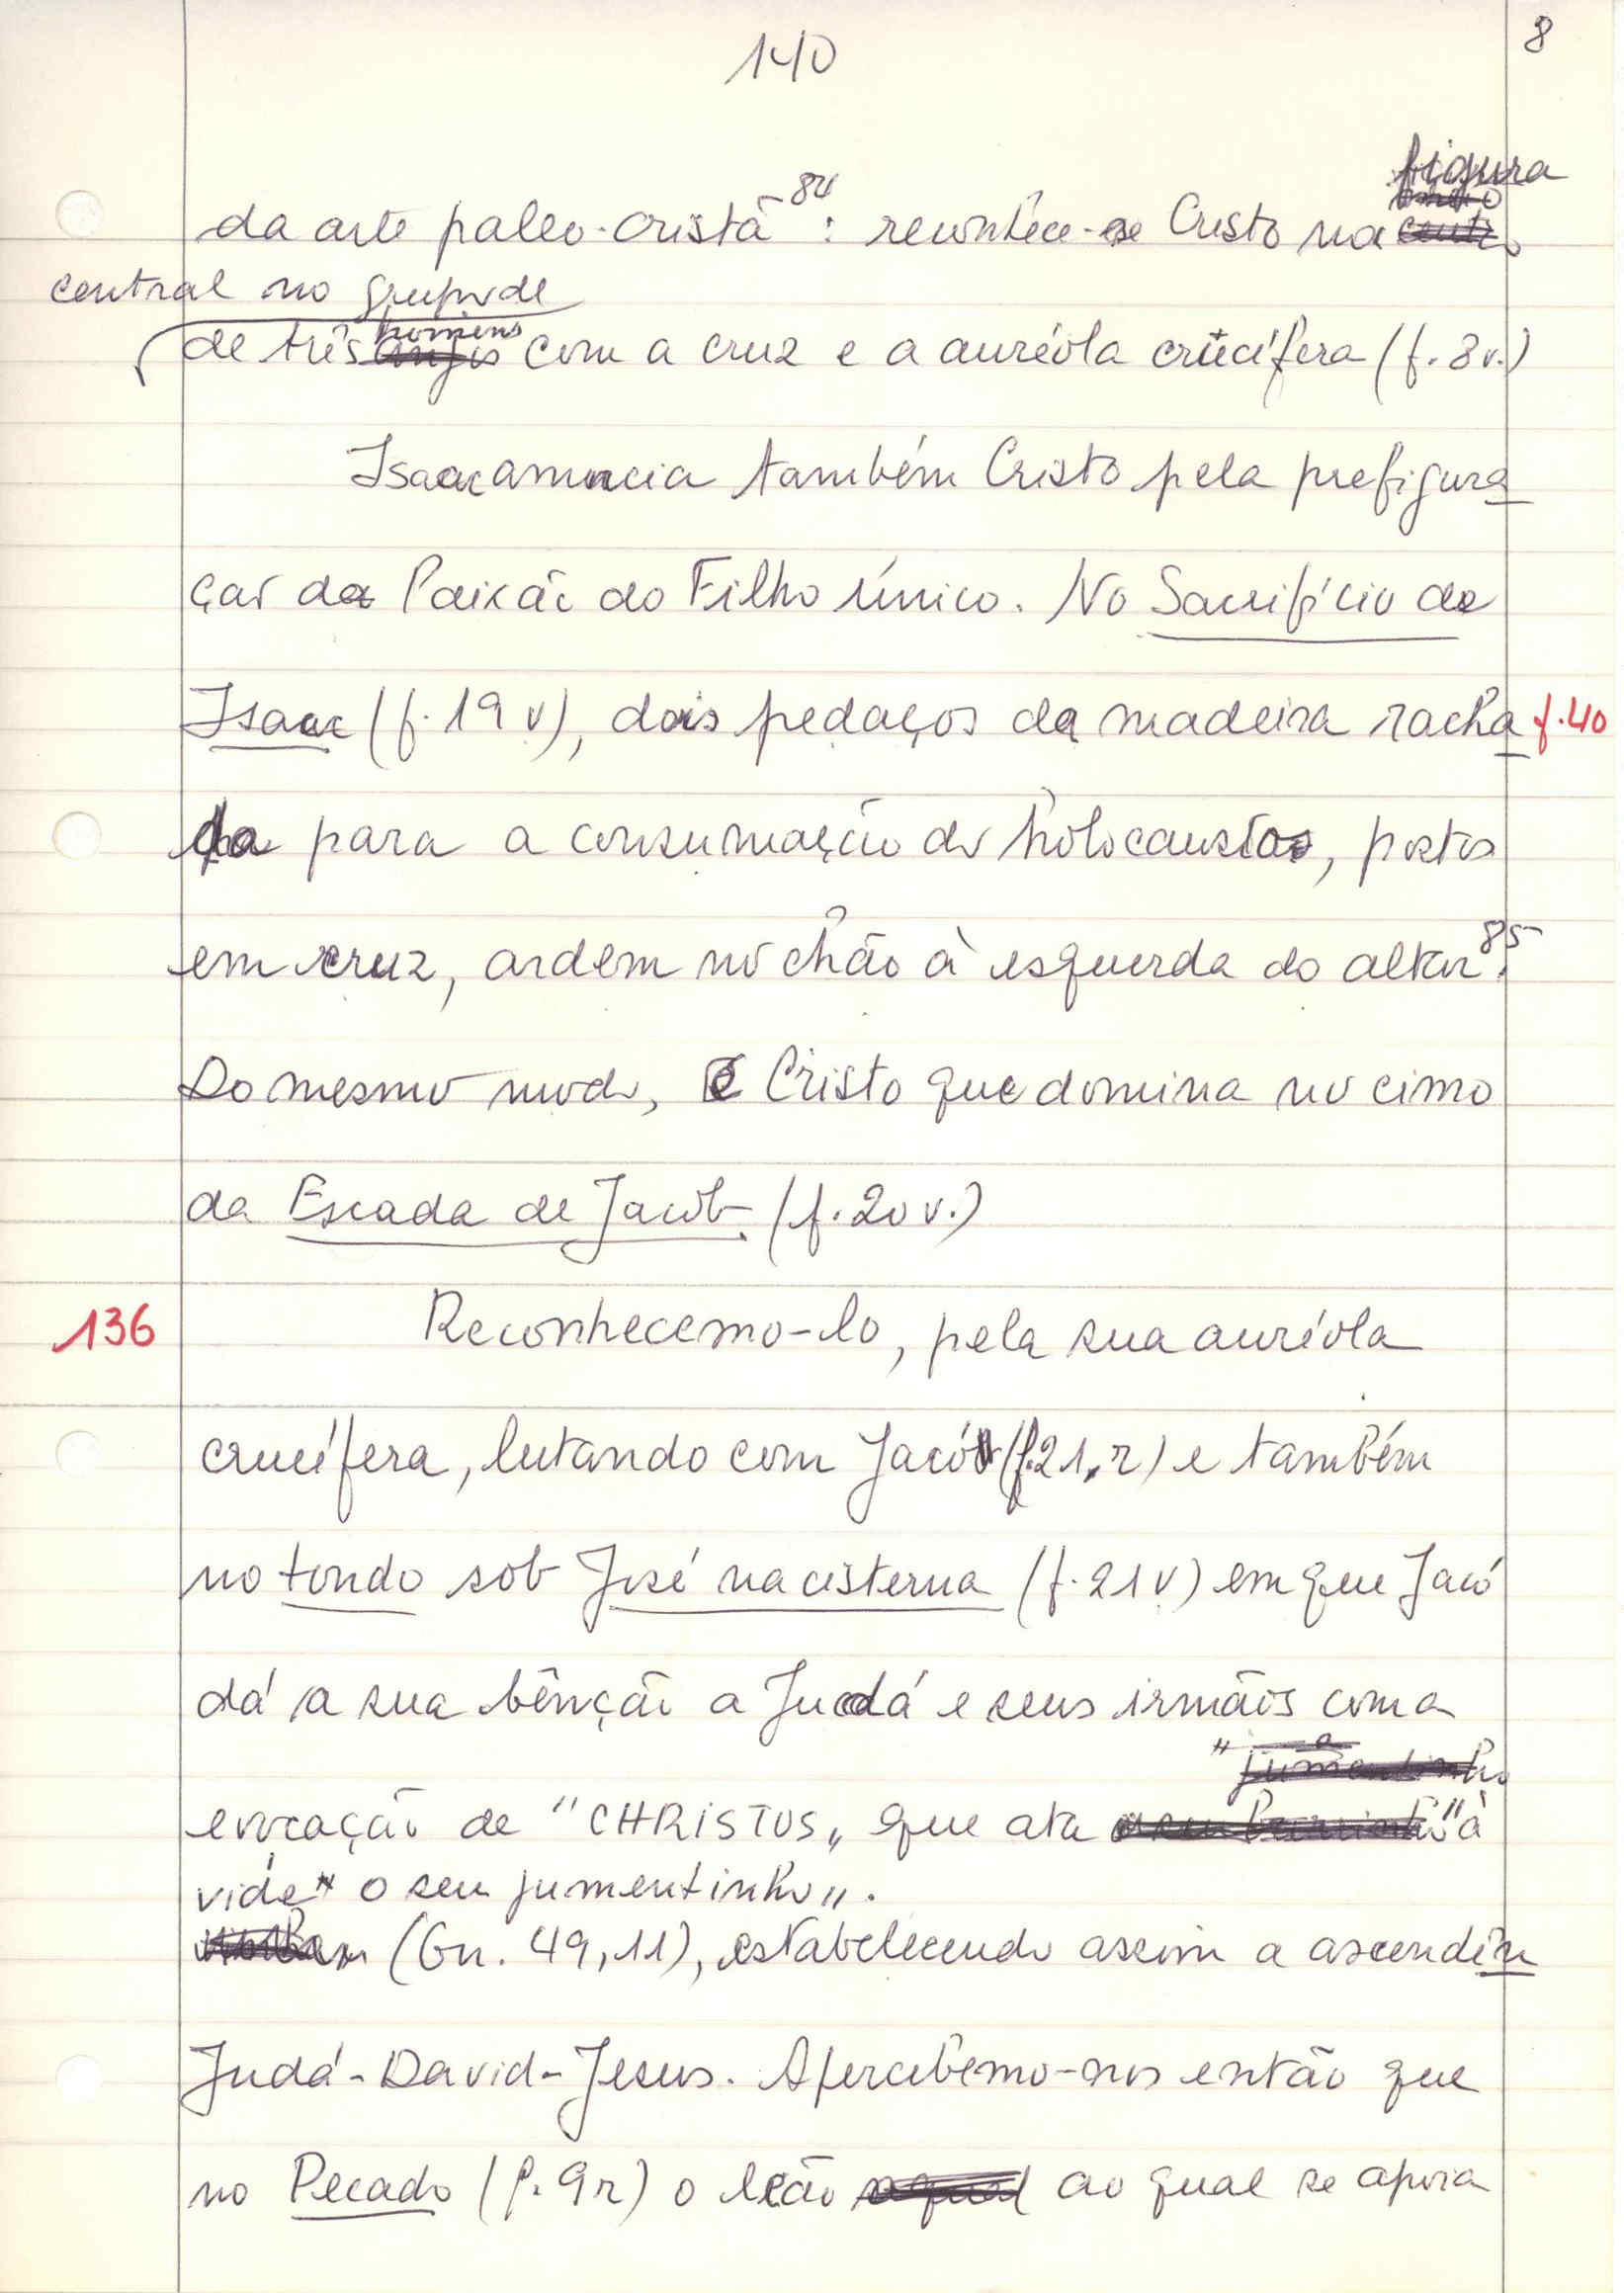 140
8
da arte paleo-cristã 84 : reconhece-se Cristo na figura
central no grupo de
de três homens com a cruz e a auréola crucífera (f. 8 v.)
Isaac anuncia também Cristo pela prefigura
ção da Paixão do Filho Único. No Sacrifício de
Isaac (f. 19 v), dois pedaços da madeira racha f. 40
da para a consumação do holocausto, postos
em cruz, ardem no chão à esquerda do altar 85.
Do mesmo modo, é Cristo que domina no cimo
da Escada de Jacob (f. 20 v.)
136 Reconhecemo-lo, pela sua auréola
crucífera, lutando com Jacó (f. 21, r) e também
no tondo sob José na cisterna (f. 21 v) em que Jacó
dá a sua bênção a Judá e seus irmãos com a
evocação de "CHRISTUS" que ata "à
vide" o seu jumentinho".
(Gn. 49, 11), estabelecendo assim a ascendên
Judá-David-Jesus. Apercebêmo-nos então que
no Pecado (f. 9 r) o leão ao qual se apoia